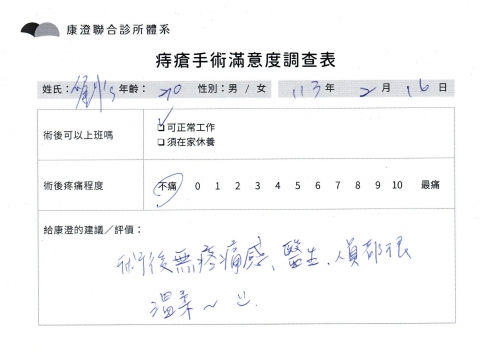 康澄聯合診所體系
痔瘡手術滿意度調查表
姓氏：劉's 年齡： 20 性別：男／女 113年 2月 16日
術後可以上班嗎 ☑可正常工作
□須在家休養
術後疼痛程度 不痛 0 1 2 3 4 5 6 7 8 9 10 最痛
給康澄的建議／評價：
術後無疼痛感、醫生、人員都很
溫柔~